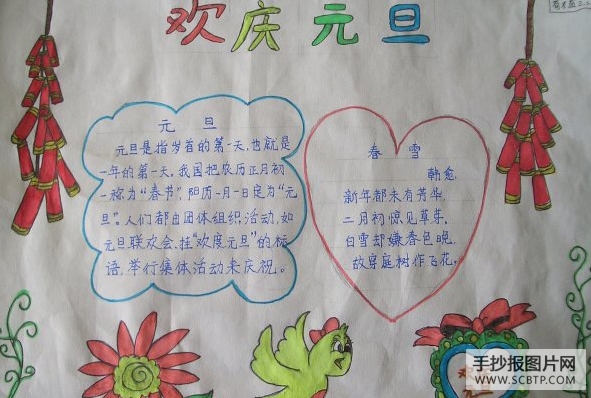 欢庆元旦
元 旦
元旦是指岁首的第一天,也就是
一年的第一天。我国把农历正月初
一称为"春节",阳历一月一日定为"元
旦"。人们都由团体组织活动,如
元旦联欢会、挂"欢度元旦"的标
语,举行集体活动来庆祝。
春 雪
韩愈
新年都未有芳华,
二月初惊见草芽。
白雪却嫌春色晚,
故穿庭树作飞花。
手抄报图片网
WWW.SCBTP.COM